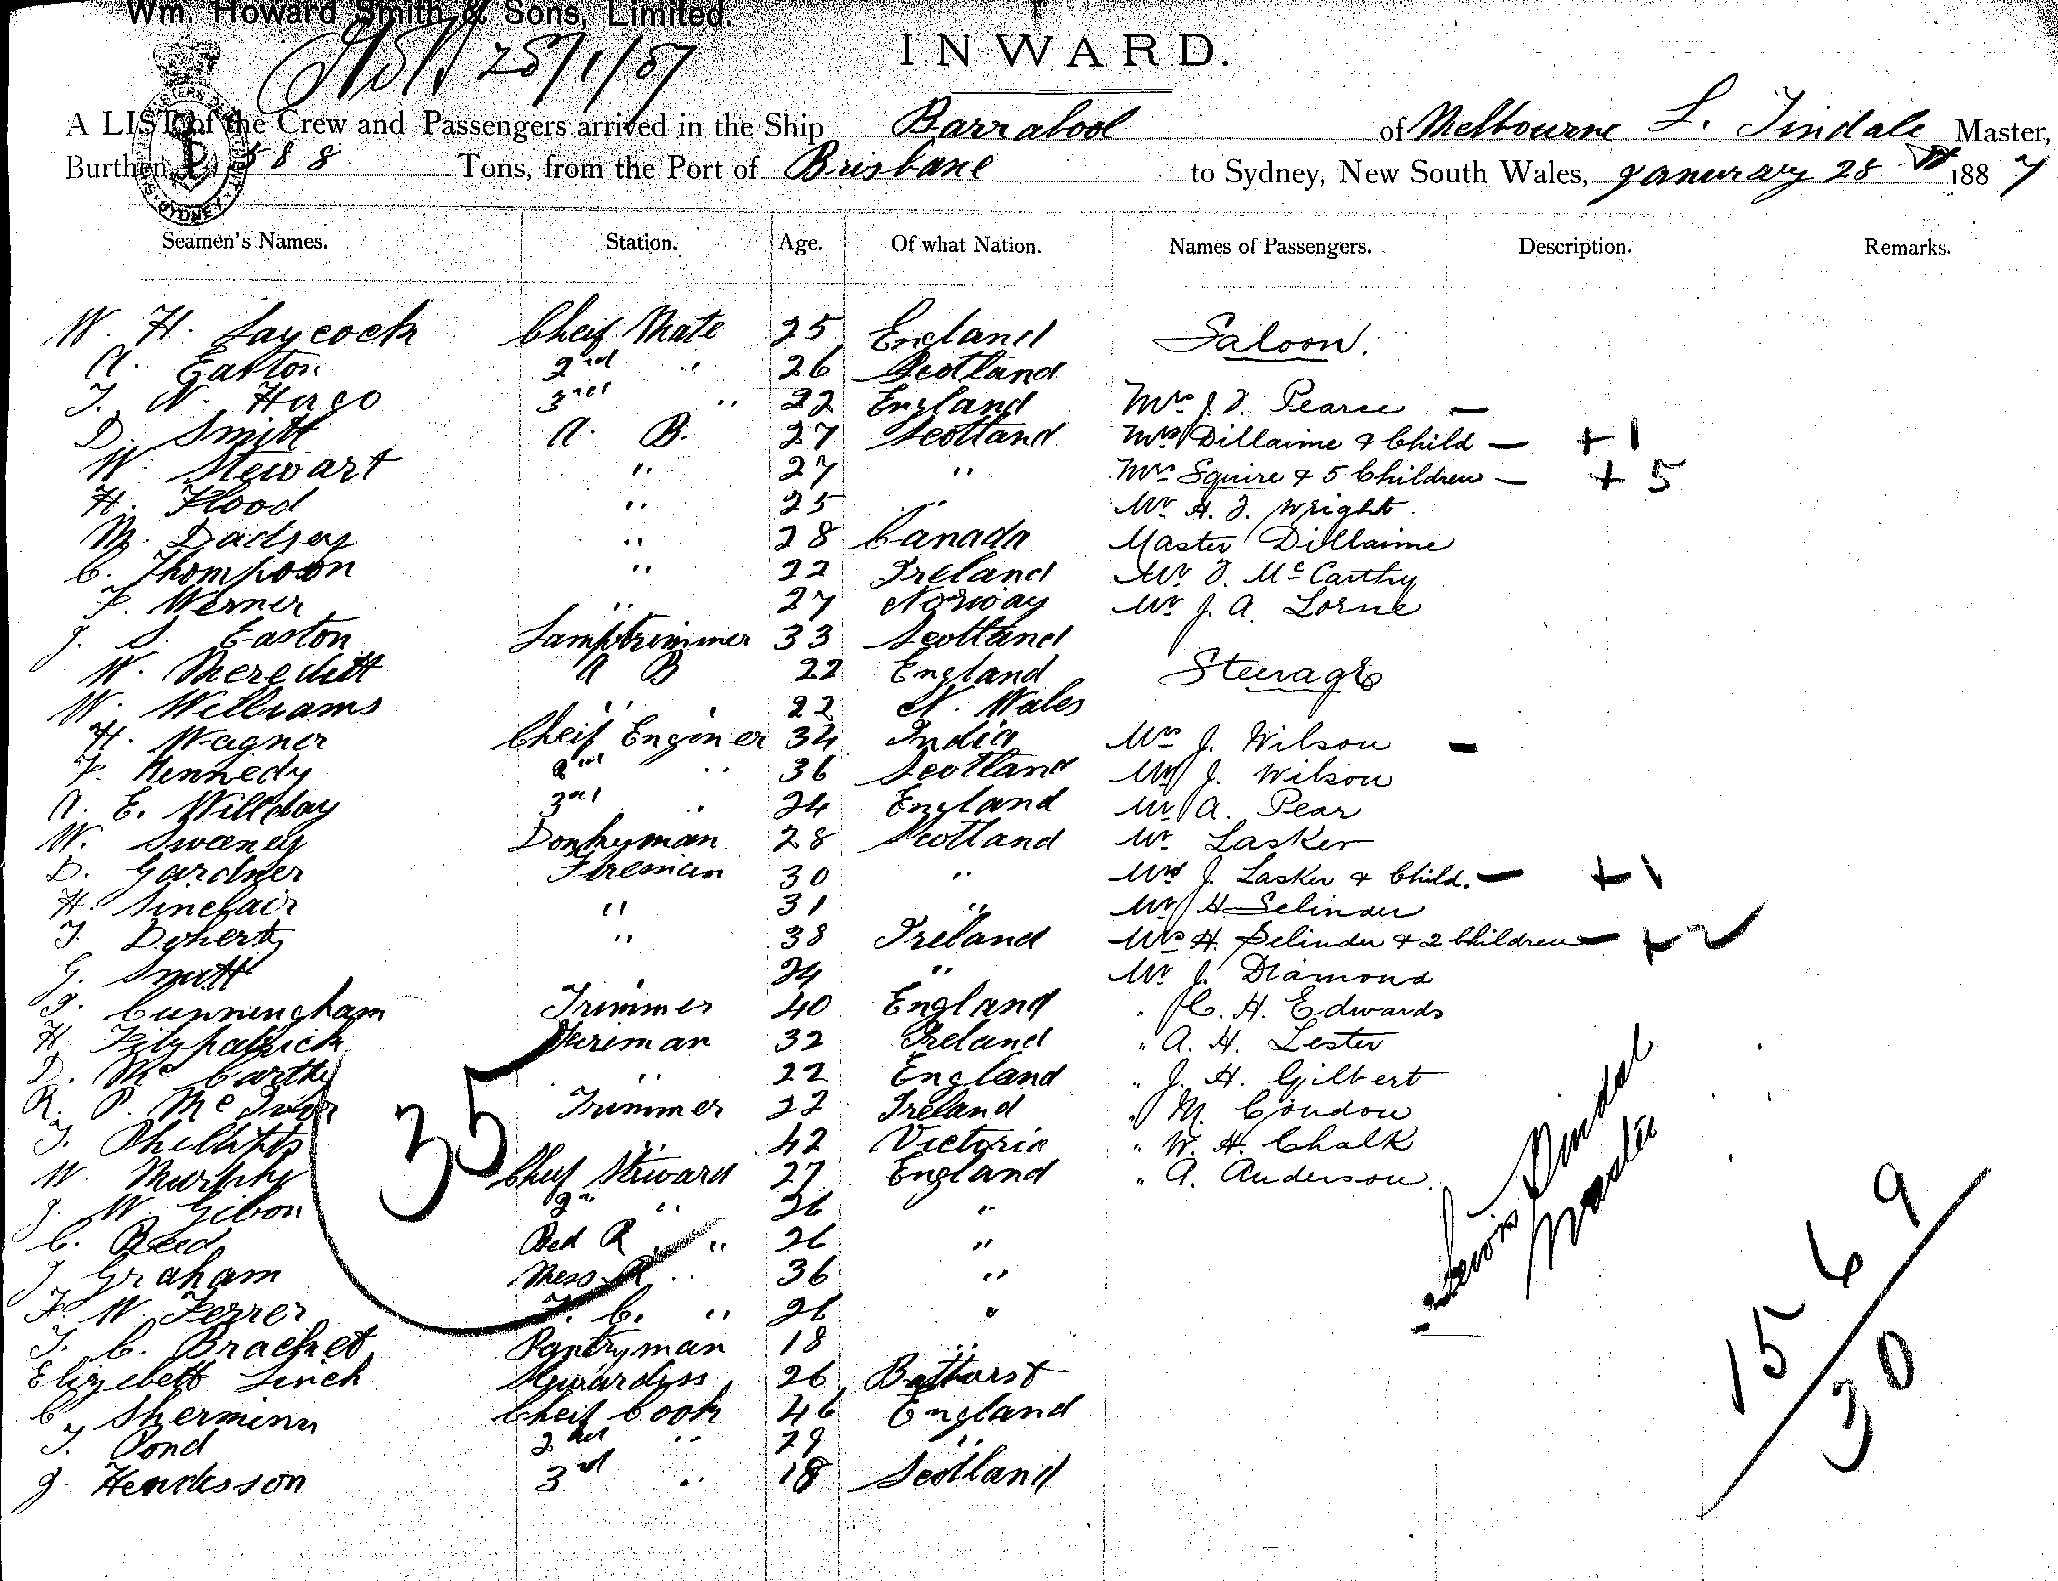 Wm. Howard Smith & Sons, Limited.
28/1/87
INWARD.
A LIST of the Crew and Passengers arrived in the Ship Barrabool of Melbourne L. Tindale Master,
Burthen 588 Tons, from the Port of Brisbane to Sydney, New South Wales, January 28th 1887
Seamen's Names. Station. Age. Of what Nation. Names of Passengers. Description. Remarks.
W. H. Laycock Cheif Mate 25 England Saloon.
A. Easton 2nd " 26 Scotland
T. W. Hugo 3rd " 22 England Mrs J. T. Pearce —
D. Smith A. B. 27 Scotland Mrs Dillaime & Child — +1
W. Stewart " 27 " Mrs Squire & 5 Children — +5
H. Flood " 25 " Mr H. T. Wright.
M. Dadsey " 28 Canada Master Dillaime
C. Thompson " 22 Ireland Mr T. McCarthy
F. Werner " 27 Norway Mr J. A. Lorne
J. S. Easton Lamptrimmer 33 Scotland
W. Meredith A B 22 England Steerage
W. Williams " " 22 N. Wales
H. Wagner Cheif Enginer 34 India Mrs J. Wilson —
F. Kennedy 2nd " 36 Scotland Mr J. Wilson
A. E. Willday 3rd " 24 England Mr A. Pear
W. Swaney Donkyman 28 Scotland Mr Lasker
D. Gardner Fireman 30 " Mrs J. Lasker & Child. — +1
H. Sinclair " 31 " Mr H Selinder
T. Doherty " 38 Ireland Mrs H. Selinder & 2 Children — +2
G. Smith " 24 " Mr J. Diamond
J. Cunningham Trimmer 40 England " C. H. Edwards
H. Fitzpatrick Fireman 32 Ireland " A. H. Lester
D. McCarthy " 22 England " J. H. Gilbert
R. P. McIvor Trimmer 22 Ireland " M. Condon
T. Phillipps " 42 Victoria " W. H. Chalk
W. Murphy Cheif Steward 27 England " A. Anderson
J. W. Gibon 2nd " 26 "
C. Reed Bed R " 26 "
J. Graham Mess R " 36 "
F. W. Ferrer F. C. " 26 "
T. C. Bracket Pantryman 18 "
Elizebeth Linch Stewardess 26 Bathurst
C. Sherminn Cheif Cook 46 England
T. Pond 2nd " 29 "
J. Hendesson 3rd " 18 Scotland
35
Lewis Tindal
Master
15 6 9
30